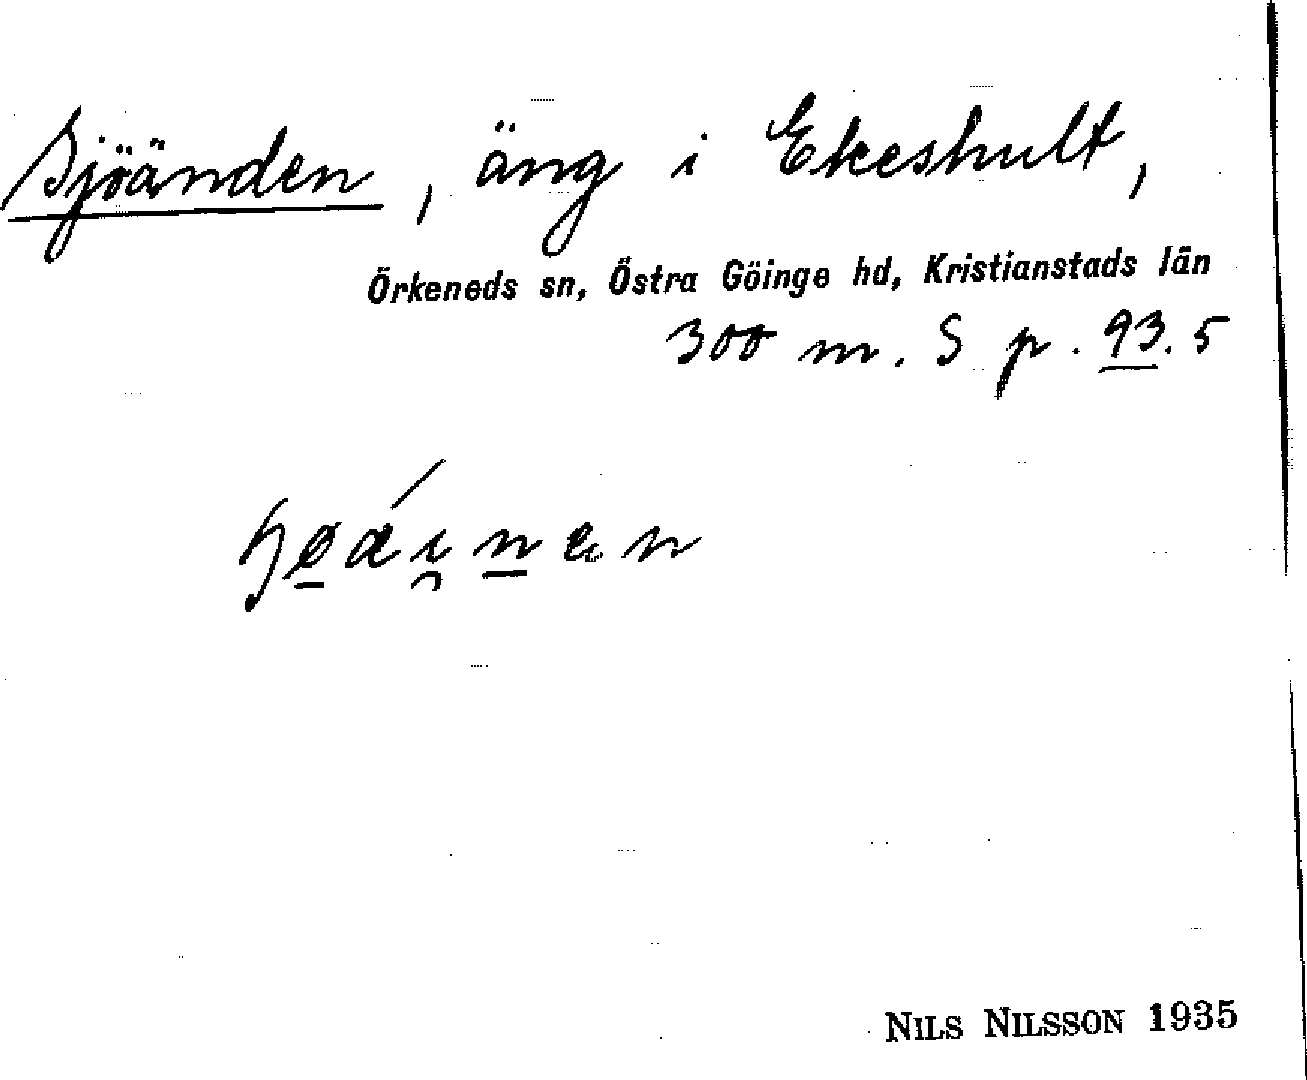 Sjöänden, äng i Ekeshult,
Örkeneds sn, Östra Göinge hd, Kristianstads län
300 m. S p. 93.5
NILS NILSSON 1935